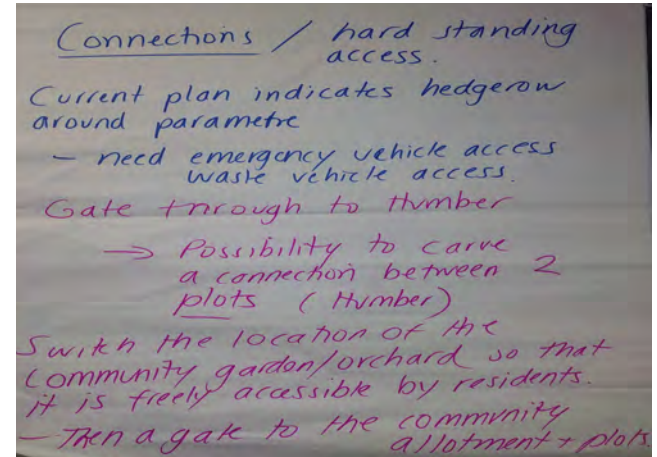 Connections / hard standing
access.
Current plan indicates hedgerow
around parametre
- need emergency vehicle access
waste vehicle access.
Gate through to Humber
→ Possibility to carve
a connection between 2
plots (Humber)
Switch the location of the
community gardon/orchard so that
it is freely acassible by residents.
- Then a gate to the community
allotment + plots